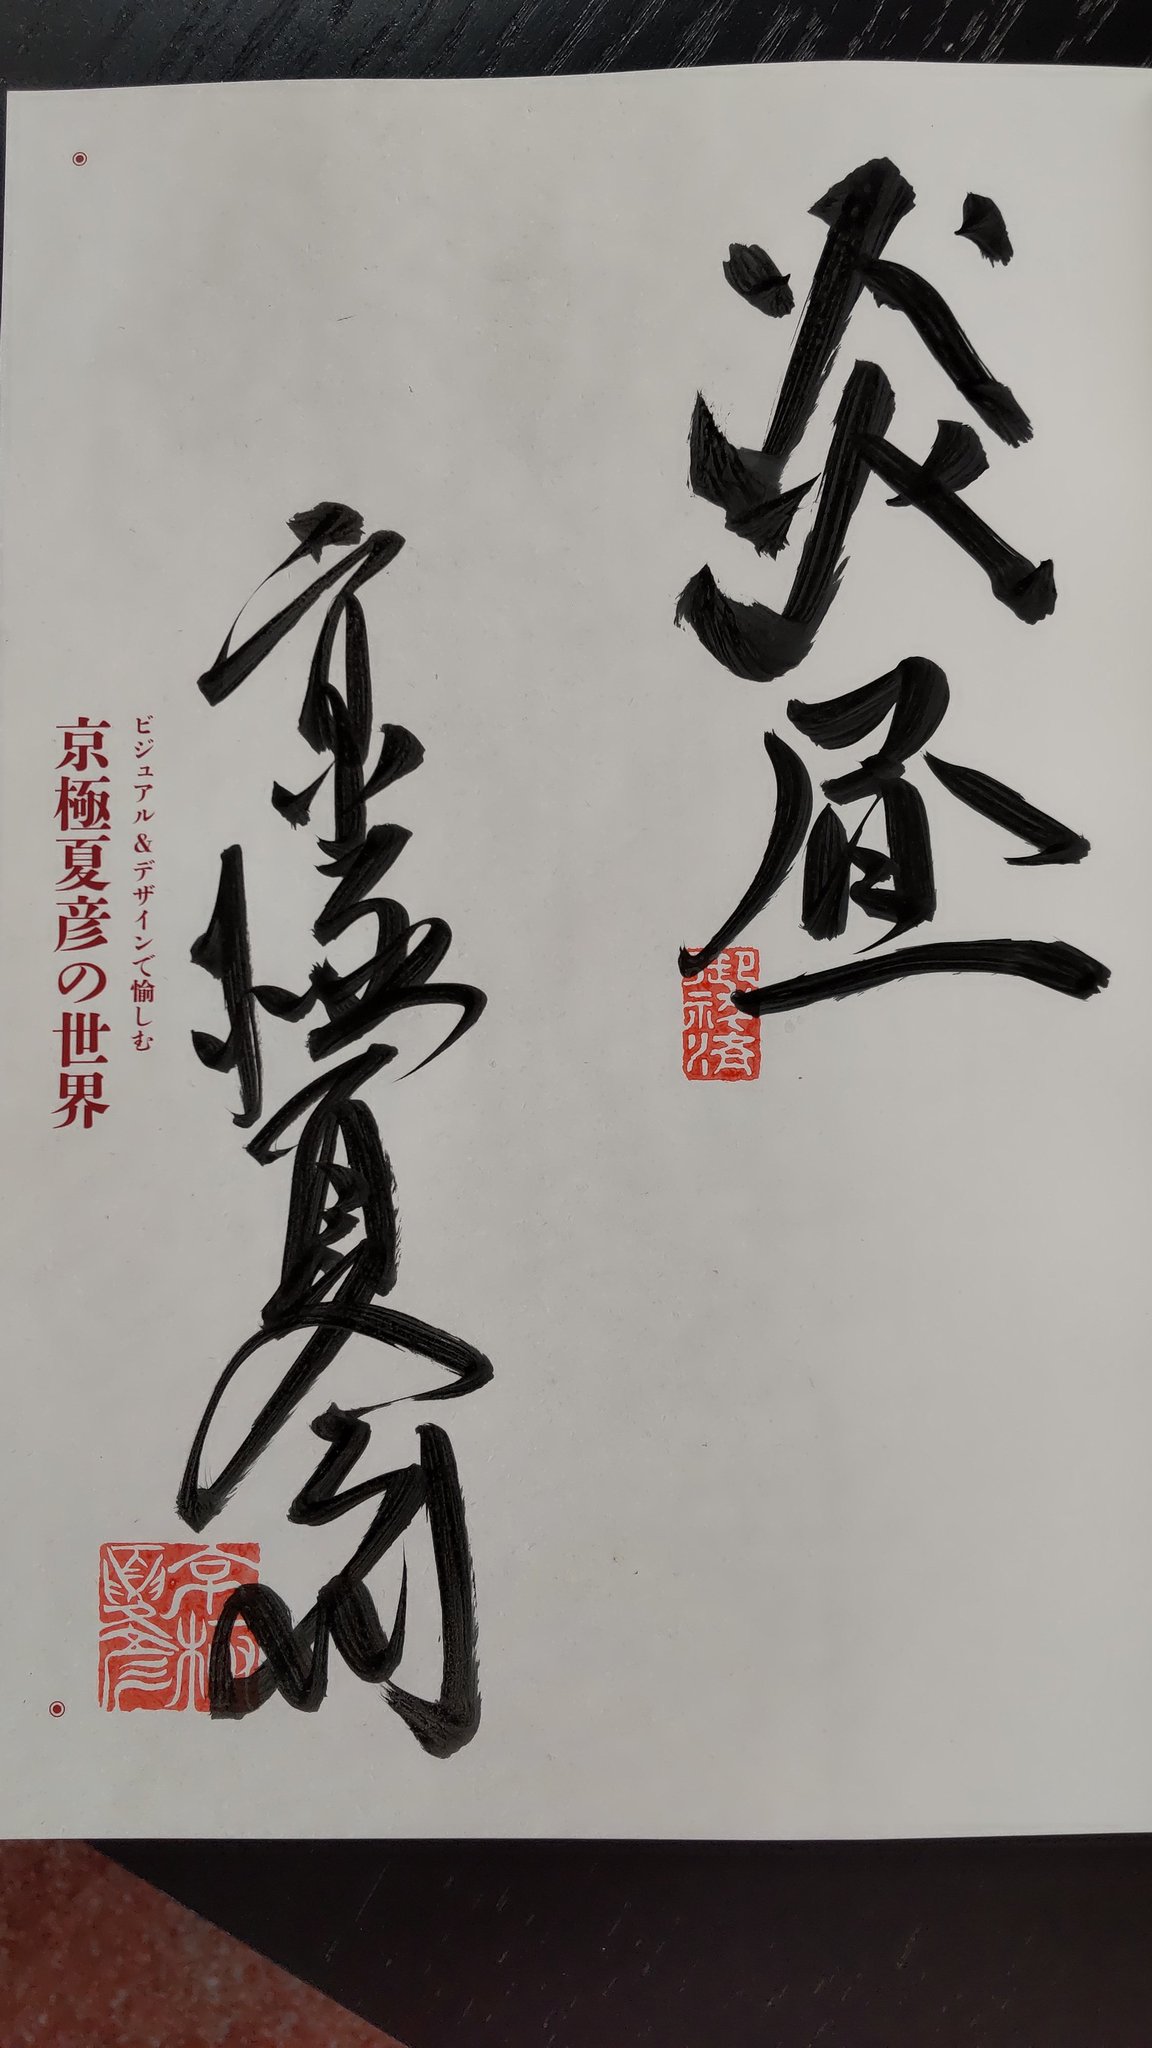 炎昼
京極夏彦
京極
夏彦
ビジュアル&デザインで愉しむ
京極夏彦の世界